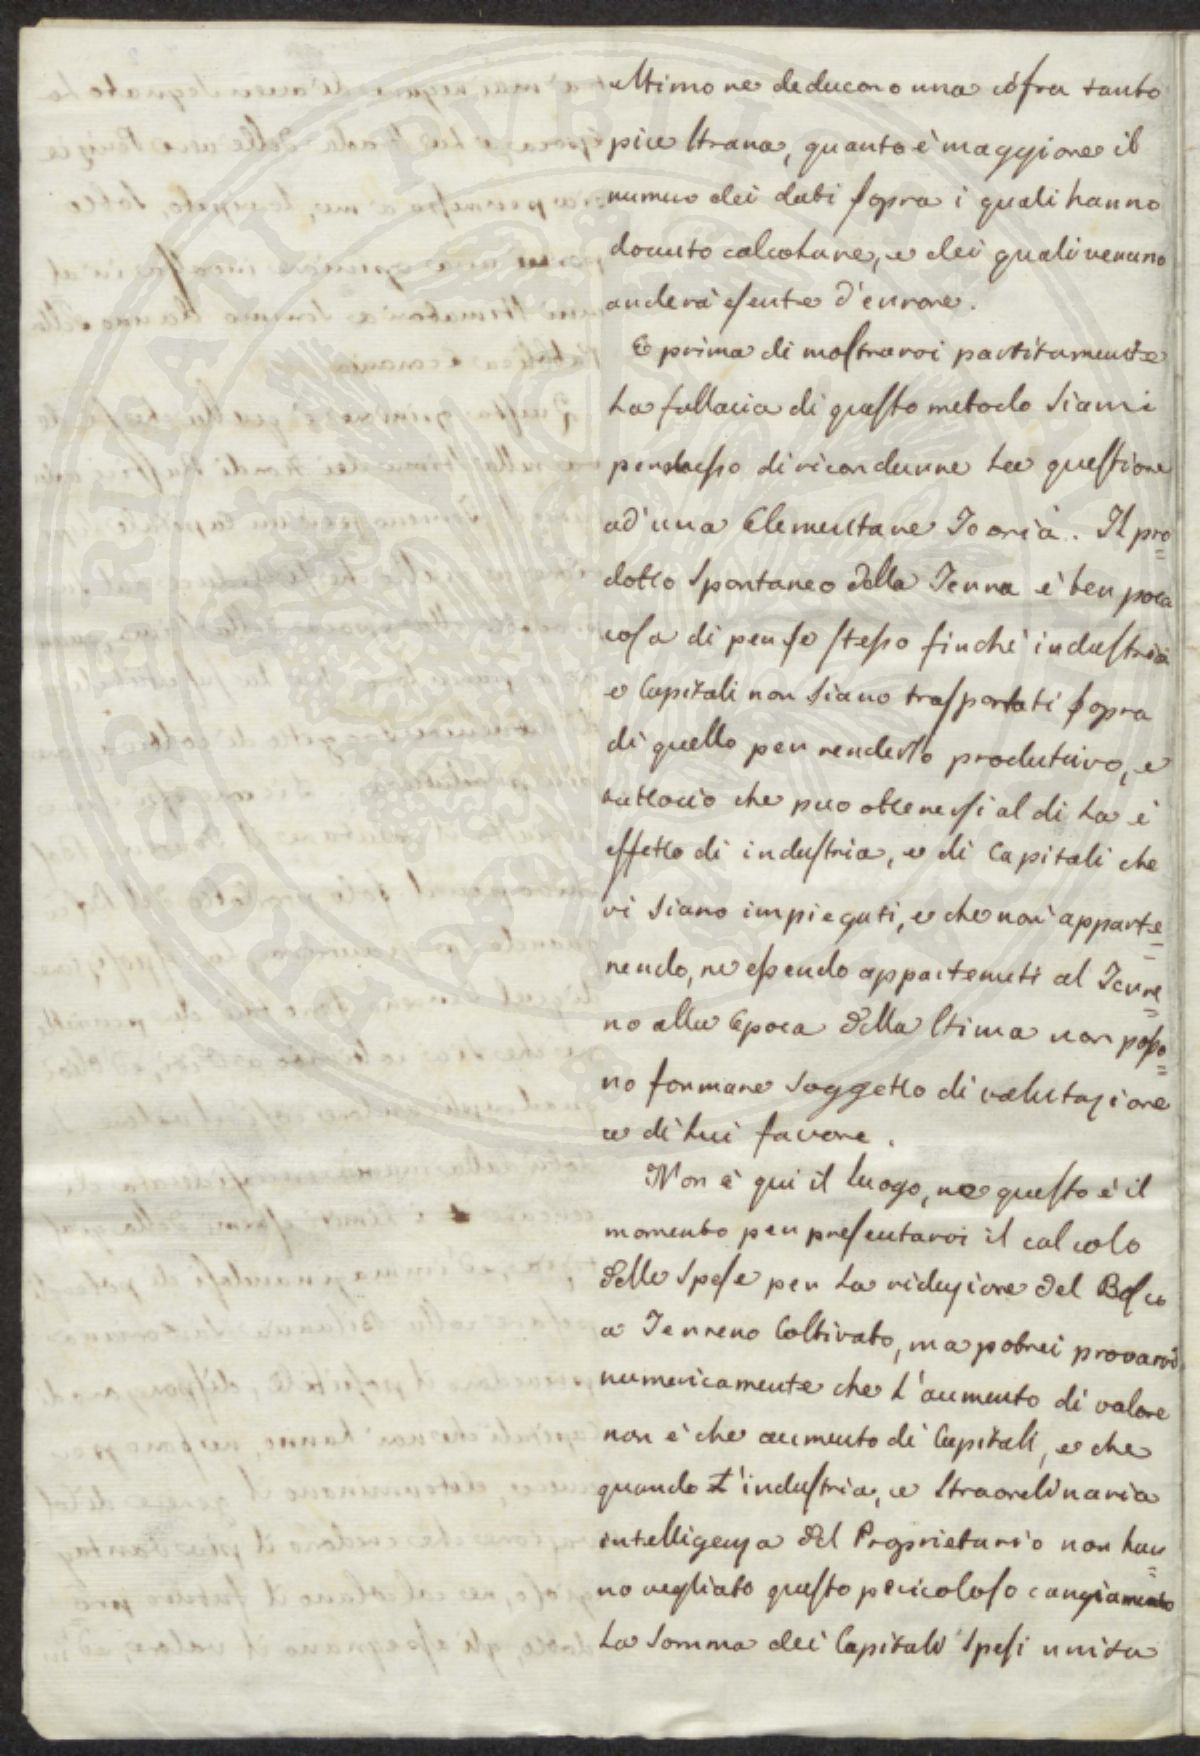 ultimo ne deducono una cifra tanto
più strana, quanto è maggiore il
numero dei dati sopra i quali hanno
dovuto calcolare, e dei quali veruno
anderà esente d'errore.
E prima di mostrarvi partitamente
la fallacia di questo metodo siami
permesso di ricondurre la questione
ad' una Elementare Teoria. Il pro=
dotto spontaneo della Terra è ben poca
cosa di per se stesso finchè industria
e Capitali non siano trasportati sopra
di quello per renderlo produttivo, e
tuttociò che può ottenersi al di là è
effetto di industria, e di Capitali che
vi siano impiegati, e che non apparte=
nendo, ne essendo appartenuti al Terre=
no alla Epoca della stima non posso=
no formare soggetto di valutazione
a di lui favore.
Non è qui il luogo, ne questo è il
momento per presentarvi il calcolo
delle spese per la riduzione del Bosco
a Terreno Coltivato, ma potrei provarvi
numericamente che l'aumento di valore
non è che aumento di Capitali, e che
quando l'industria, e straordinaria
intelligenza del Proprietario non han=
no vegliato questo pericoloso cangiamento
la somma dei Capitali spesi unita
SOPRI PATI PUBLICA